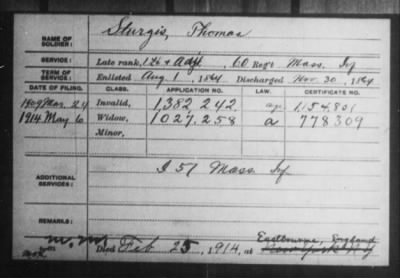 NAME OF SOLDIER: Sturgis, Thomas
SERVICE: Late rank, 1 Lt & Adjt, 60 Reg't Mass. Inf
TERM OF SERVICE: Enlisted Aug. 1, 1864 Discharged Nov. 30, 1864
DATE OF FILING. CLASS. APPLICATION NO. LAW. CERTIFICATE NO.
1909 Mar. 24 Invalid, 1,382 242. 1,154,801
1914 May 6 Widow, 1027.258 a 778309
Minor,
ADDITIONAL SERVICES: I 57 Mass. Inf
REMARKS:
Eastbourne, England
Died Feb 25, 1914, at New York N Y